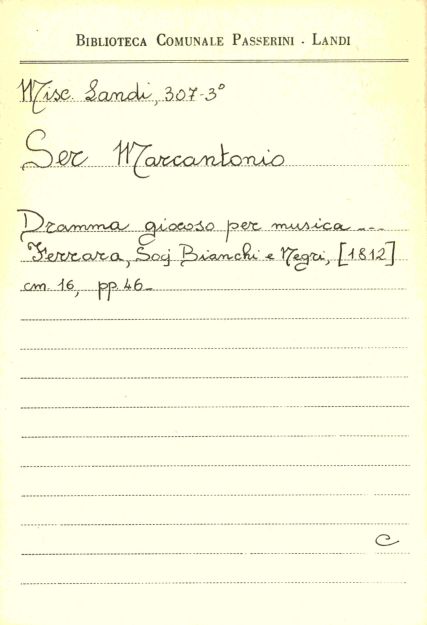 BIBLIOTECA COMUNALE PASSERINI - LANDI
Misc. Landi, 307-3°
Ser Marcantonio
Dramma giocoso per musica ---
Ferrara, Socj Bianchi e Negri, [1812]
cm. 16, pp. 46-
C